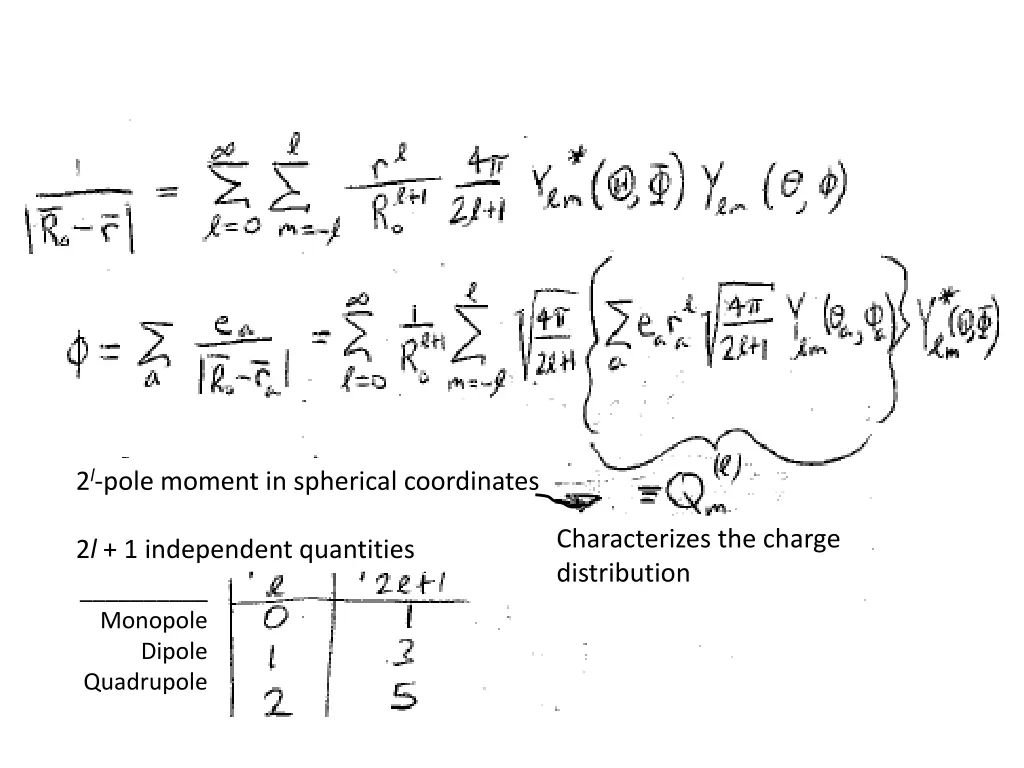 1/|R̄₀-r̄| = ∑_{l=0}^{∞} ∑_{m=-l}^{l} r^l/R₀^{l+1} 4π/2l+1 Y*_{lm}(Θ,Φ) Y_{lm}(θ,ϕ)
ϕ = ∑_a e_a/|R̄₀-r̄_a| = ∑_{l=0}^{∞} 1/R₀^{l+1} ∑_{m=-l}^{l} √(4π/2l+1) {∑_a e_a r_a^l √(4π/2l+1) Y_{lm}(θ_a,ϕ_a)} Y*_{lm}(Θ,Φ)
2^l-pole moment in spherical coordinates
≡ Q_m^{(l)}
Characterizes the charge
distribution
2l + 1 independent quantities
l 2l+1
Monopole 0 1
Dipole 1 3
Quadrupole 2 5